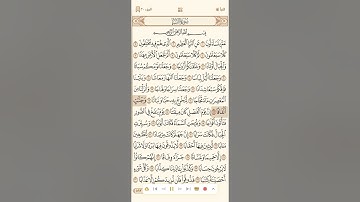 سُورَةُ النَّبَإِ
بِسْمِ اللَّهِ الرَّحْمَٰنِ الرَّحِيمِ
عَمَّ يَتَسَاءَلُونَ ١ عَنِ النَّبَإِ الْعَظِيمِ ٢ الَّذِي هُمْ فِيهِ مُخْتَلِفُونَ
٣ كَلَّا سَيَعْلَمُونَ ٤ ثُمَّ كَلَّا سَيَعْلَمُونَ ٥ أَلَمْ نَجْعَلِ الْأَرْضَ مِهَادًا
٦ وَالْجِبَالَ أَوْتَادًا ٧ وَخَلَقْنَاكُمْ أَزْوَاجًا ٨ وَجَعَلْنَا نَوْمَكُمْ سُبَاتًا
٩ وَجَعَلْنَا اللَّيْلَ لِبَاسًا ١٠ وَجَعَلْنَا النَّهَارَ مَعَاشًا ١١ وَبَنَيْنَا
فَوْقَكُمْ سَبْعًا شِدَادًا ١٢ وَجَعَلْنَا سِرَاجًا وَهَّاجًا ١٣ وَأَنزَلْنَا
مِنَ الْمُعْصِرَاتِ مَاءً ثَجَّاجًا ١٤ لِّنُخْرِجَ بِهِ حَبًّا وَنَبَاتًا ١٥ وَجَنَّاتٍ
أَلْفَافًا ١٦ إِنَّ يَوْمَ الْفَصْلِ كَانَ مِيقَاتًا ١٧ يَوْمَ يُنفَخُ فِي الصُّورِ
فَتَأْتُونَ أَفْوَاجًا ١٨ وَفُتِحَتِ السَّمَاءُ فَكَانَتْ أَبْوَابًا ١٩ وَسُيِّرَتِ
الْجِبَالُ فَكَانَتْ سَرَابًا ٢٠ إِنَّ جَهَنَّمَ كَانَتْ مِرْصَادًا ٢١
لِّلطَّاغِينَ مَآبًا ٢٢ لَّابِثِينَ فِيهَا أَحْقَابًا ٢٣ لَّا يَذُوقُونَ فِيهَا بَرْدًا
وَلَا شَرَابًا ٢٤ إِلَّا حَمِيمًا وَغَسَّاقًا ٢٥ جَزَاءً وِفَاقًا ٢٦ إِنَّهُمْ كَانُوا
لَا يَرْجُونَ حِسَابًا ٢٧ وَكَذَّبُوا بِآيَاتِنَا كِذَّابًا ٢٨ وَكُلَّ شَيْءٍ
أَحْصَيْنَاهُ كِتَابًا ٢٩ فَذُوقُوا فَلَن نَّزِيدَكُمْ إِلَّا عَذَابًا ٣٠